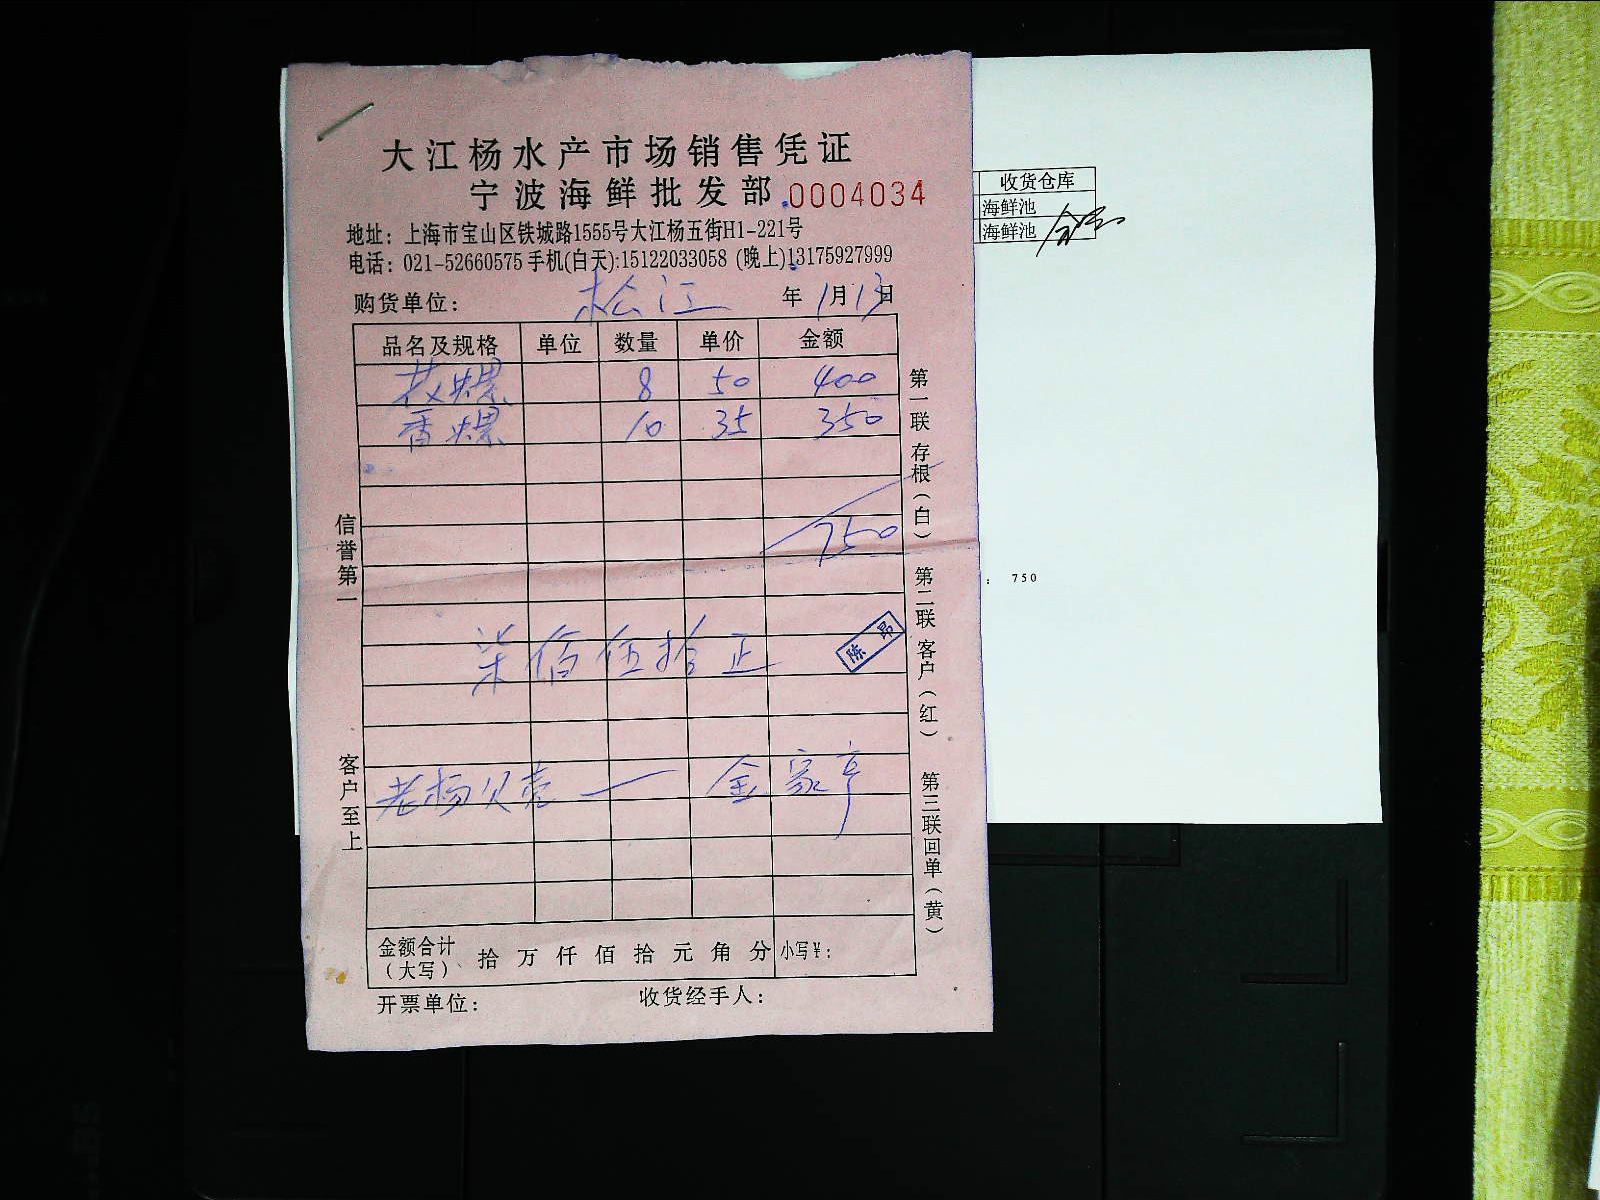 大江杨水产市场销售凭证
宁波海鲜批发部 0004034
地址：上海市宝山区铁城路1555号大江杨五街H1-221号
电话：021-52660575 手机(白天):15122033058 (晚上)13175927999
购货单位： 松江 年 1月13日
品名及规格 单位 数量 单价 金额
花螺 8 50 400
香螺 10 35 350
750
柒佰伍拾正
陈昂
老杨贝壳 — 金家亭
金额合计（大写） 拾 万 仟 佰 拾 元 角 分 小写¥：
开票单位： 收货经手人：
信誉第一
客户至上
第一联 存根（白）
第二联 客户（红）
第三联 回单（黄）
收货仓库
海鲜池
海鲜池
： 750